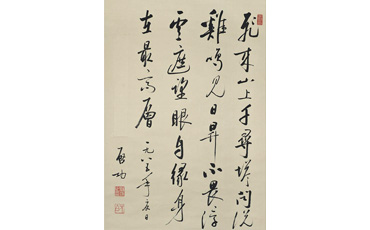 飛來山上千尋塔聞說
雞鳴見日昇不畏浮
雲遮望眼自緣身
在最高層 一九八
启功